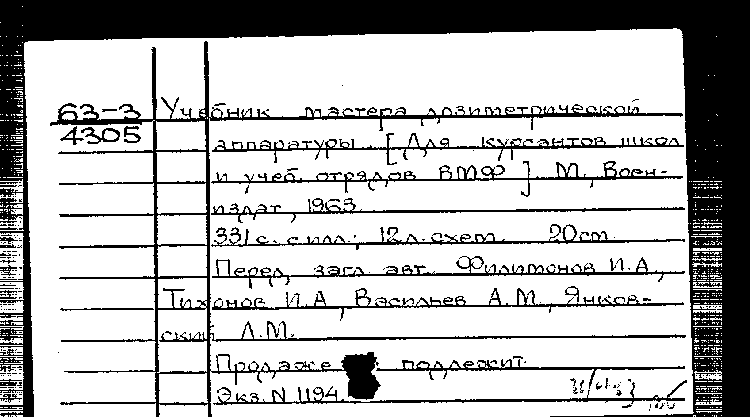 63-3 Учебник мастера дозиметрической
4305 аппаратуры. [Для курсантов школ
и учеб. отрядов ВМФ]. М., Воен-
издат, 1963.
331 с. с илл.; 12 л. схем. 20 см.
Перед загл. авт. Филимонов И.А.,
Тихонов И.А., Васильев А.М., Янков-
ский Л.М.
Продаже подлежит.
Экз. N 1194.